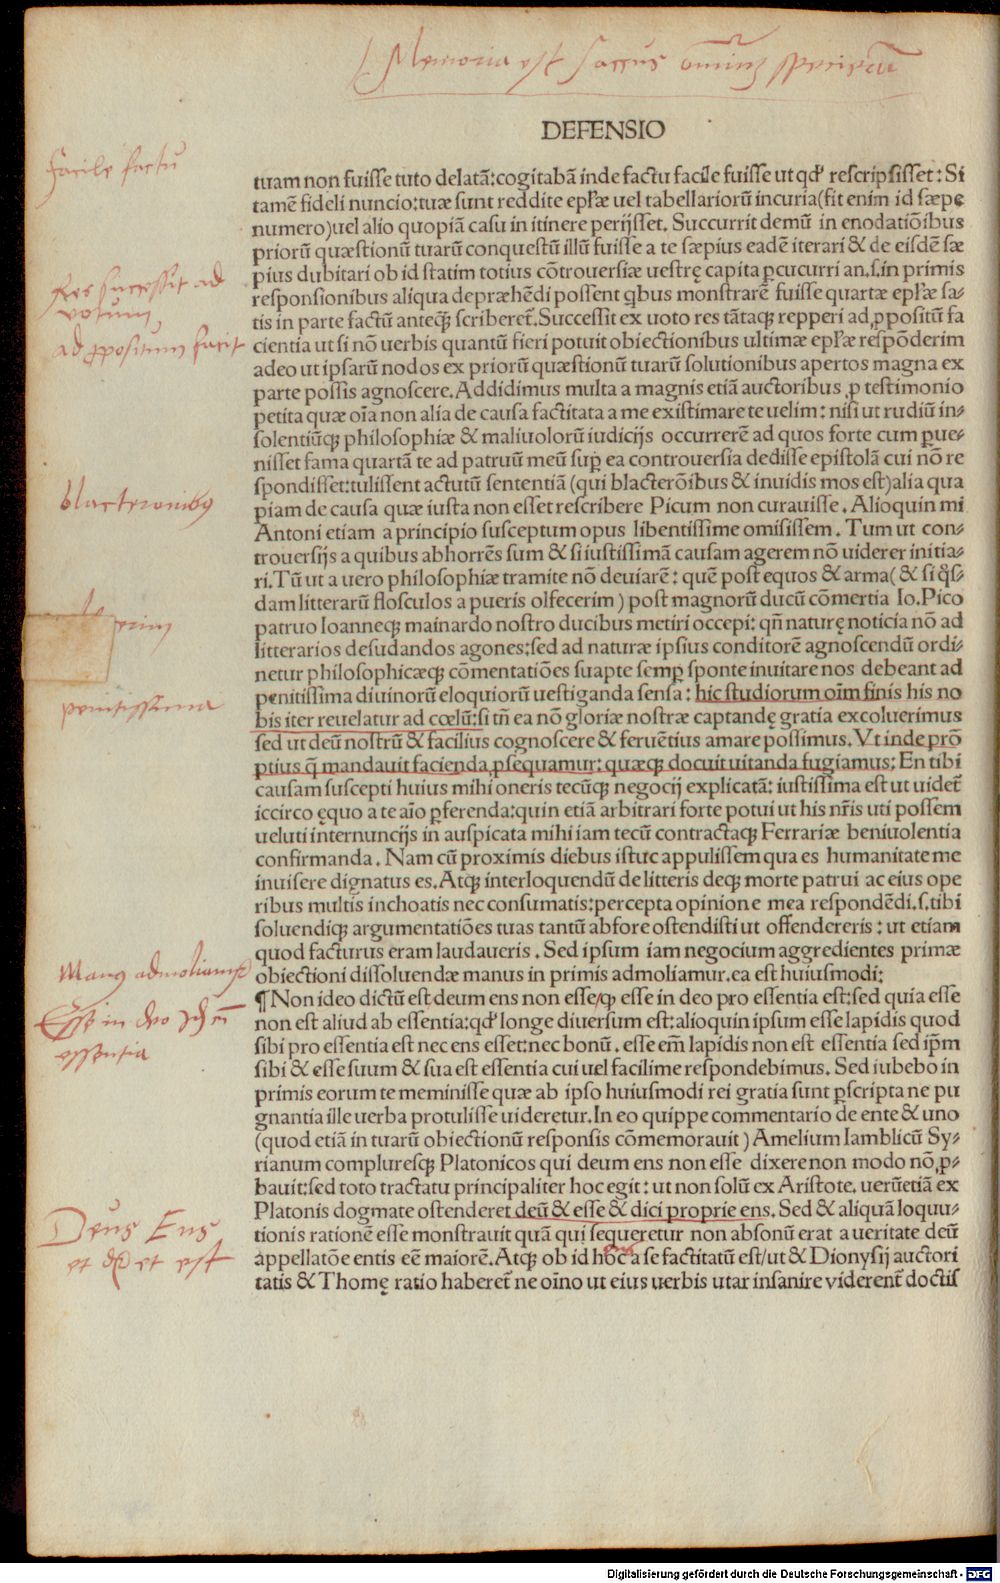 Memoria est saccus omniū specierū
DEFENSIO
Facile factu
tuam non fuisse tuto delatā: cogitabā inde factu facile fuisse ut qđ rescripsisset: Si
tamē fideli nuncio: tuæ sunt reddite epłæ uel tabellariorū incuria (fit enim id sæpe
numero) uel alio quopiā casu in itinere perijsset. Succurrit demū in enodatiōibus
priorū quæstionū tuarū conquestū illū fuisse a te sæpius eadē iterari & de eisdē sæ
pius dubitari ob id statim totius cōtrouersiæ uestrę capita ꝑcucurri an.s.in primis
Res successit ad
votum
responsionibus aliqua depræhēdi possent qbus monstrarē fuisse quartæ epłæ sa⸗
tis in parte factū anteq̃ scriberet̃. Successit ex uoto res tātaqꝫ repperi ad ꝓpositū fa
ad ꝓpositum facit
cientia ut si nō uerbis quantū fieri potuit obiectionibus ultimæ epłæ respōderim
adeo ut ipsarū nodos ex priorū quæstionū tuarū solutionibus apertos magna ex
parte possis agnoscere. Addidimus multa a magnis etiā auctoribus ꝓ testimonio
petita quæ oīa non alia de causa factitata a me existimare te uelim: nisi ut rudiū in⸗
solentiūqꝫ philosophiæ & maliuolorū iudicijs occurrerē ad quos forte cum ꝑue⸗
nisset fama quartā te ad patruū meū suꝑ ea controuersia dedisse epistolā cui nō re
blacteronibus
spondisset: tulissent actutū sententiā (qui blacterōibus & inuidis mos est) alia qua
piam de causa quæ iusta non esset rescribere Picum non curauisse. Alioquin mi
Antoni etiam a principio susceptum opus libentissime omisissem. Tum ut con⸗
trouersijs a quibus abhorrēs sum & si iustissimā causam agerem nō uiderer initia⸗
ri. Tū ut a uero philosophiæ tramite nō deuiarē: quē post equos & arma (& si q̃s⸗
dam litterarū flosculos a pueris olfecerim) post magnorū ducū cōmertia Io. Pico
patruo Ioanneqꝫ mainardo nostro ducibus metiri occepi: qñ naturę noticia nō ad
litterarios desudandos agones: sed ad naturæ ipsius conditorē agnoscendū ordi⸗
netur philosophicæqꝫ cōmentatiōes suapte semꝑ sponte inuitare nos debeant ad
penitissima
penitissima diuinorū eloquiorū uestiganda sensa: hic studiorum oīm finis his no
bis iter reuelatur ad cœlū: si tñ ea nō gloriæ nostræ captandę gratia excoluerimus
sed ut deū nostrū & facilius cognoscere & feruētius amare possimus. Vt inde prō
ptius q̃ mandauit facienda ꝓsequamur: quæqꝫ docuit uitanda fugiamus: En tibi
causam suscepti huius mihi oneris tecūqꝫ negocij explicatā: iustissima est ut uidet̃
iccirco ęquo a te aīo ꝑferenda: quin etiā arbitrari forte potui ut his nr̃is uti possem
ueluti internuncijs in auspicata mihi iam tecū contractaqꝫ Ferrariæ beniuolentia
confirmanda. Nam cū proximis diebus istuc appulissem qua es humanitate me
inuisere dignatus es. Atqꝫ interloquendū de litteris deqꝫ morte patrui ac eius ope
ribus multis inchoatis nec consumatis: percepta opinione mea respondēdi.s.tibi
soluendiqꝫ argumentatiōes tuas tantū abfore ostendisti ut offendereris: ut etiam
quod facturus eram laudaueris. Sed ipsum iam negocium aggredientes primæ
Manus admoliamur
obiectioni dissoluendæ manus in primis admoliamur. ea est huiusmodi:
¶ Non ideo dictū est deum ens non esse/qꝫ esse in deo pro essentia est: sed quia esse
Esse in deo
essentia
non est aliud ab essentia: qđ longe diuersum est: alioquin ipsum esse lapidis quod
sibi pro essentia est nec ens esset: nec bonū. esse em̄ lapidis non est essentia sed ip̄m
sibi & esse suum & sua est essentia cui uel facilime respondebimus. Sed iubebo in
primis eorum te meminisse quæ ab ipso huiusmodi rei gratia sunt ꝑscripta ne pu
gnantia ille uerba protulisse uideretur. In eo quippe commentario de ente & uno
(quod etiā in tuarū obiectionū responsis cōmemorauit) Amelium Iamblicū Sy⸗
rianum compluresqꝫ Platonicos qui deum ens non esse dixere non modo nō ꝓ⸗
bauit: sed toto tractatu principaliter hoc egit: ut non solū ex Aristote. uerūetiā ex
Deus Ens
et dr̄ et est
Platonis dogmate ostenderet deū & esse & dici proprie ens. Sed & aliquā loquu⸗
tionis rationē esse monstrauit quā qui sequeretur non absonū erat a ueritate deū
appellatōe entis eē maiorē. Atqꝫ ob id hoc a se factitatū est/ut & Dionysij auctori
tatis & Thomę ratio haberet̃ ne oīno ut eius uerbis utar insanire viderent̃ doctis
Digitalisierung gefördert durch die Deutsche Forschungsgemeinschaft - DFG